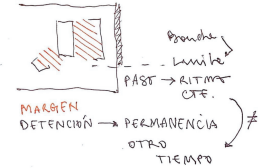 Límite
PASO → RITMO
CTE.
MARGEN
DETENCIÓN → PERMANENCIA ≠
OTRO
TIEMPO